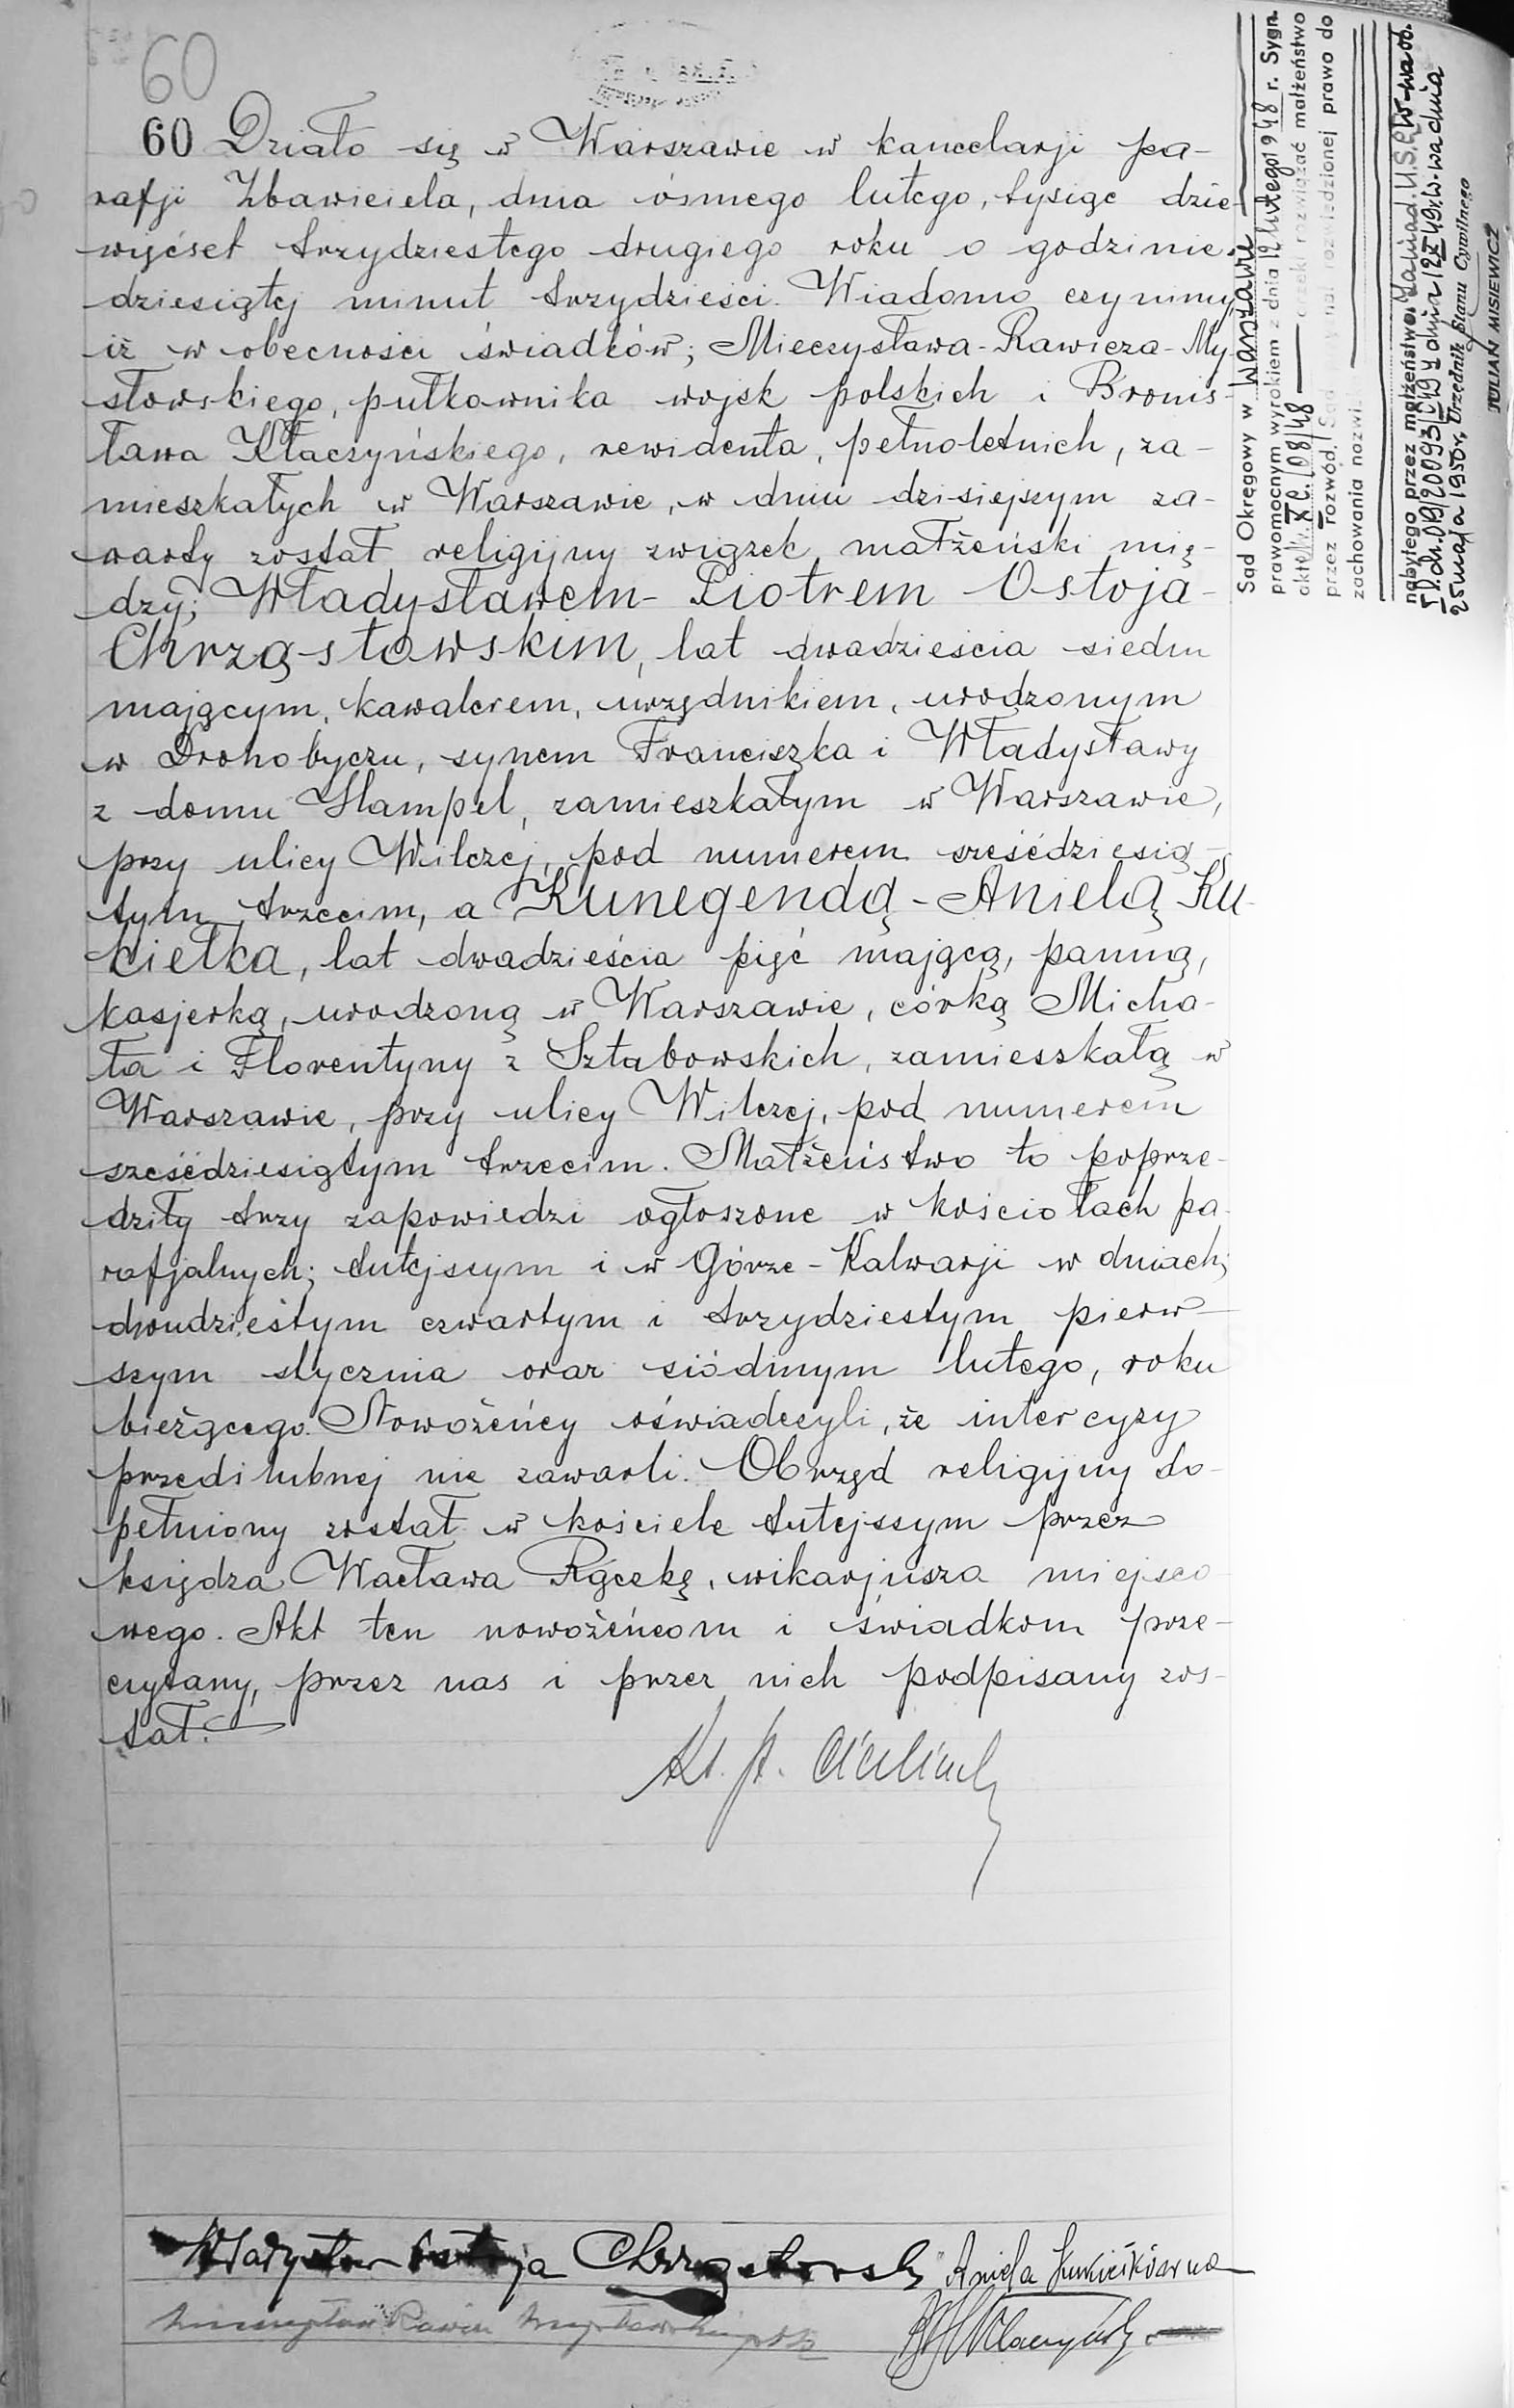 60
60 Działo się w Warszawie w kancelarji pa-
rafji Zbawiciela, dnia ósmego lutego, tysiąc dzie-
więćset trzydziestego drugiego roku o godzinie
dziesiątej minut trzydzieści. Wiadomo czynimy,
iż w obecności świadków; Mieczysława-Rawicza-My-
słowskiego, pułkownika wojsk polskich i Bronis-
ława Kłaczyńskiego, rewidenta, pełnoletnich, za-
mieszkałych w Warszawie, w dniu dzisiejszym za-
warty został religijny związek małżeński mię-
dzy; Władysławem-Piotrem Ostoja-
Chrząstowskim, lat dwadzieścia siedm
mającym, kawalerem, urzędnikiem, urodzonym
w Drohobyczu, synem Franciszka i Władysławy
z domu Hampel, zamieszkałym w Warszawie,
przy ulicy Wilczej, pod numerem sześćdziesią-
tym trzecim, a Kunegendą-Anielą Ku-
kiełka, lat dwadzieścia pięć mającą, panną,
kasjerką, urodzoną w Warszawie, córką Micha-
ła i Florentyny z Sztabowskich, zamieszkałą w
Warszawie, przy ulicy Wilczej, pod numerem
sześćdziesiątym trzecim. Małżeństwo to poprze-
dziły trzy zapowiedzi ogłoszone w kościołach pa-
rafjalnych; tutejszym i w Górze-Kalwarji w dniach;
dwudziestym czwartym i trzydziestym pierw-
szym stycznia oraz siódmym lutego, roku
bieżącego. Nowożeńcy oświadczyli, że intercyzy
przedślubnej nie zawarli. Obrzęd religijny do-
pełniony został w kościele tutejszym przez
księdza Wacława Rączkę, wikarjusza miejsco-
wego. Akt ten nowożeńcom i świadkom prze-
czytany, przez nas i przez nich podpisany zos-
tał.
Władysław Ostoja Chrząstowski Aniela Kukiełkówna
Mieczysław Rawicz Mysłowski
Kłaczyński
Sąd Okręgowy w Warszawie
prawomocnym wyrokiem z dnia 12 lutego 1948 r. Sygn.
orzekł rozwiązać małżeństwo
przez rozwód. rozwiedzionej prawo do
zachowania nazwi
nabytego przez małżeństwo.
25 maja 1950r. Urzędnik Stanu Cywilnego
JULIAN MISIEWICZ